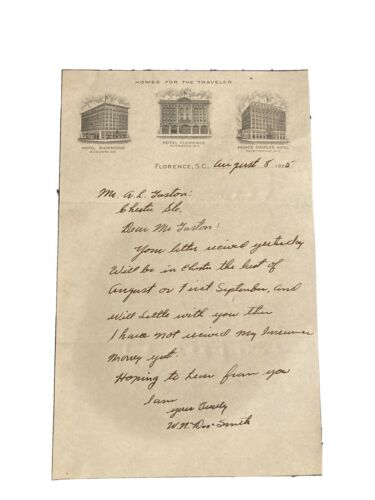 HOMES FOR THE TRAVELER
HOTEL RICHMOND
AUGUSTA, GA.
HOTEL FLORENCE
FLORENCE, S.C.
PRINCE CHARLES HOTEL
FAYETTEVILLE, N.C.
FLORENCE, S.C., August 8 1925
Mr. A. L. Gaston:
Chester Sc.
Dear Mr Gaston!
Your letter recived yesterday
Will be in Chester the last of
August or First September, and
will Settle with you then
I have not recived my Insurance
Money yet.
Hoping to hear from you
I am
your Truely
W. W. "Doc" Smith